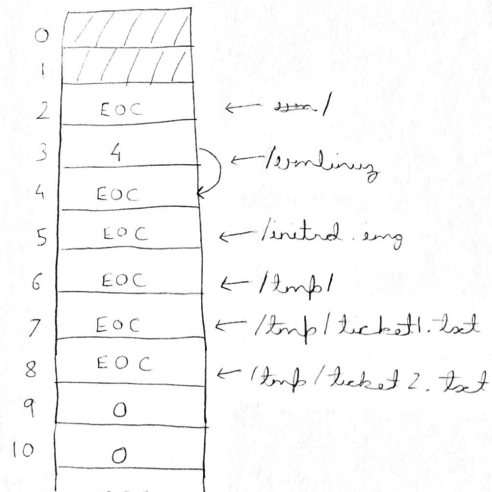 0
1
2 EOC ← /
3 4 ← /vmlinuz
4 EOC
5 EOC ← /initrd.img
6 EOC ← /tmp/
7 EOC ← /tmp/ticket1.txt
8 EOC ← /tmp/ticket2.txt
9 0
10 0